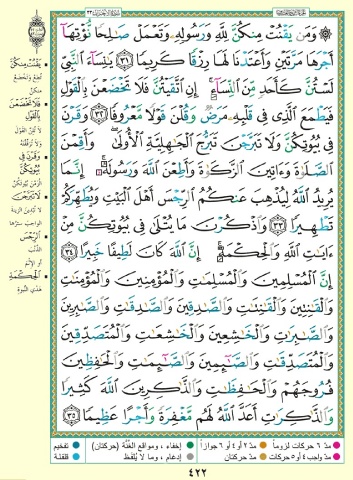 وَمَن يَقْنُتْ مِنكُنَّ لِلَّهِ وَرَسُولِهِ وَتَعْمَلْ صَٰلِحًا نُّؤْتِهَآ
أَجْرَهَا مَرَّتَيْنِ وَأَعْتَدْنَا لَهَا رِزْقًا كَرِيمًا ٣١ يَٰنِسَآءَ ٱلنَّبِيِّ
لَسْتُنَّ كَأَحَدٍ مِّنَ ٱلنِّسَآءِ إِنِ ٱتَّقَيْتُنَّ فَلَا تَخْضَعْنَ بِٱلْقَوْلِ
فَيَطْمَعَ ٱلَّذِي فِي قَلْبِهِ مَرَضٌ وَقُلْنَ قَوْلًا مَّعْرُوفًا ٣٢ وَقَرْنَ
فِي بُيُوتِكُنَّ وَلَا تَبَرَّجْنَ تَبَرُّجَ ٱلْجَٰهِلِيَّةِ ٱلْأُولَىٰ وَأَقِمْنَ
ٱلصَّلَوٰةَ وَءَاتِينَ ٱلزَّكَوٰةَ وَأَطِعْنَ ٱللَّهَ وَرَسُولَهُ إِنَّمَا
يُرِيدُ ٱللَّهُ لِيُذْهِبَ عَنكُمُ ٱلرِّجْسَ أَهْلَ ٱلْبَيْتِ وَيُطَهِّرَكُمْ
تَطْهِيرًا ٣٣ وَٱذْكُرْنَ مَا يُتْلَىٰ فِي بُيُوتِكُنَّ مِنْ
ءَايَٰتِ ٱللَّهِ وَٱلْحِكْمَةِ إِنَّ ٱللَّهَ كَانَ لَطِيفًا خَبِيرًا ٣٤
إِنَّ ٱلْمُسْلِمِينَ وَٱلْمُسْلِمَٰتِ وَٱلْمُؤْمِنِينَ وَٱلْمُؤْمِنَٰتِ
وَٱلْقَٰنِتِينَ وَٱلْقَٰنِتَٰتِ وَٱلصَّٰدِقِينَ وَٱلصَّٰدِقَٰتِ وَٱلصَّٰبِرِينَ
وَٱلصَّٰبِرَٰتِ وَٱلْخَٰشِعِينَ وَٱلْخَٰشِعَٰتِ وَٱلْمُتَصَدِّقِينَ
وَٱلْمُتَصَدِّقَٰتِ وَٱلصَّٰٓئِمِينَ وَٱلصَّٰٓئِمَٰتِ وَٱلْحَٰفِظِينَ
فُرُوجَهُمْ وَٱلْحَٰفِظَٰتِ وَٱلذَّٰكِرِينَ ٱللَّهَ كَثِيرًا
وَٱلذَّٰكِرَٰتِ أَعَدَّ ٱللَّهُ لَهُم مَّغْفِرَةً وَأَجْرًا عَظِيمًا ٣٥
يَقْنُتْ مِنكُنَّ
تُطِعْ وَتَخْضَعْ
مِنكُنَّ
فَلَا تَخْضَعْنَ
بِالْقَوْلِ
لَا تُلِنَّ القَوْلَ
وَلَا تُرَقِّقْنَهُ
وَقَرْنَ فِي
بُيُوتِكُنَّ
الْزَمْنَ بُيُوتَكُنَّ
لَا تَبَرَّجْنَ
لَا تُبْدِينَ الزِّينَةَ
الواجب سترها
الرِّجْسَ
الذنب
أو الإثم
الْحِكْمَةِ
هَدْيِ النُّبوّة
مدّ ٦ حركات لزوماً مدّ ٢ أو ٤ أو ٦ جوازاً إخفاء، ومواقع الغُنَّة (حركتان) تفخيم
مدّ واجب ٤ أو ٥ حركات مدّ حركتان إدغام، وما لا يُلفَظ قلقلة
٤٢٢